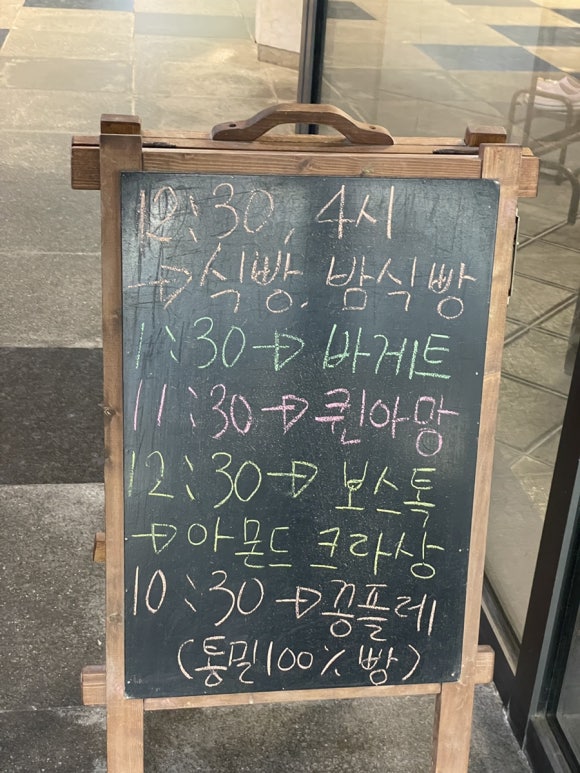 12:30, 4시
→식빵. 밤식빵
11:30→바게트
11:30→퀸아망
12:30→보스톡
→아몬드 크라상
10:30→꽁플레
(통밀100% 빵)